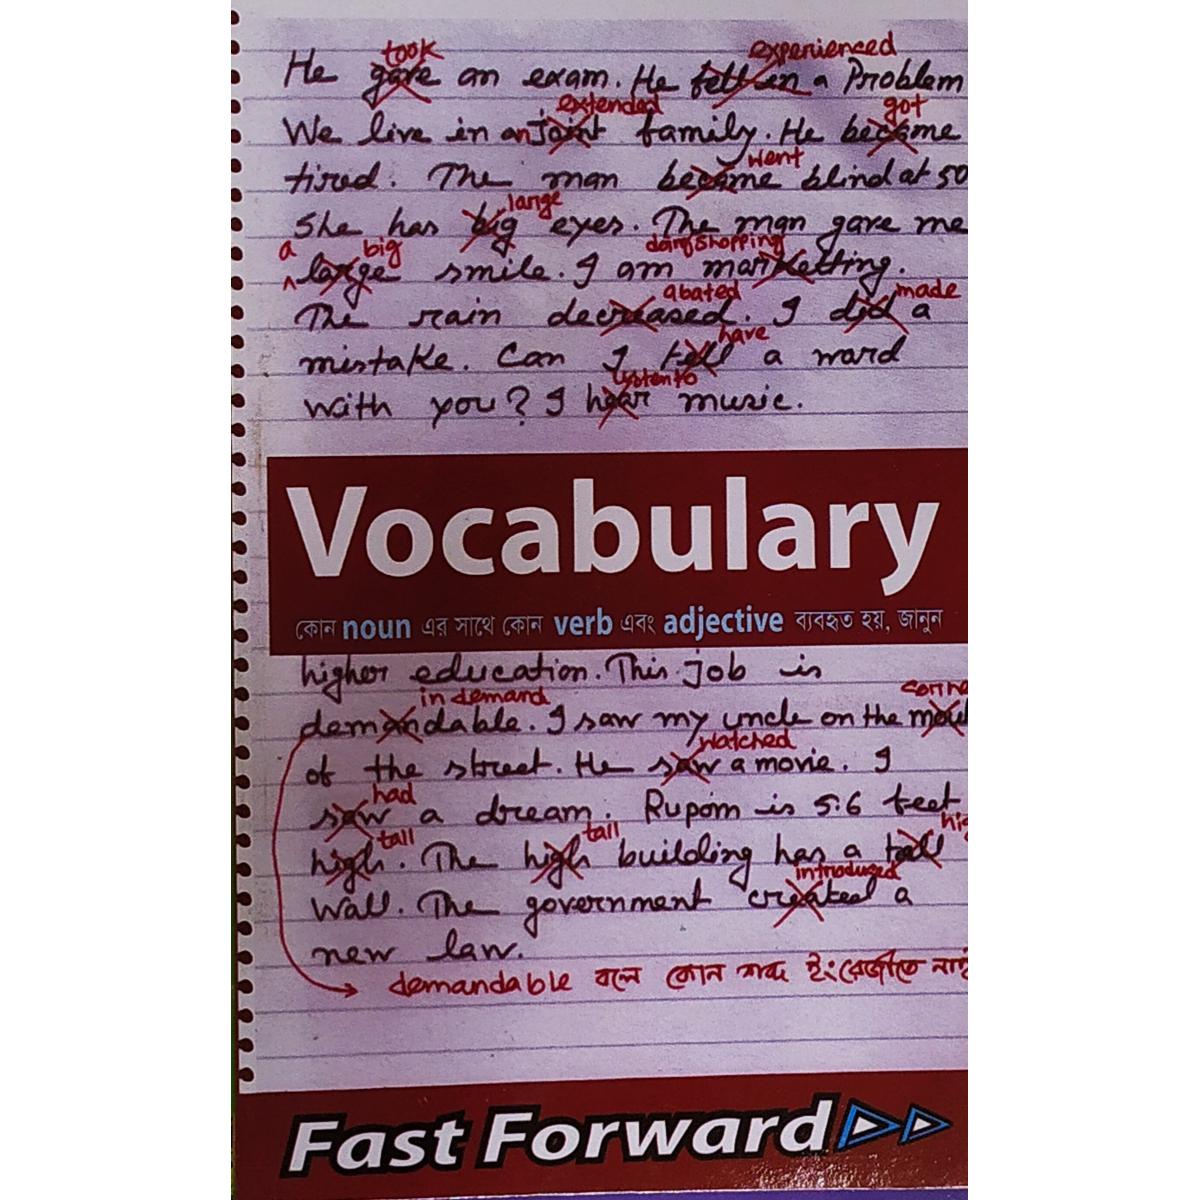 took experienced
He gave an exam. He fell in a Problem
extended got
We live in an Joint family. He became
went
tired. The man became blind at 50
large
She has big eyes. The man gave me
a big doing shopping
large smile. I am marketting.
abated made
The rain decreased. I did a
have
mistake. Can I tell a word
listen to
with you? I hear music.
Vocabulary
কোন noun এর সাথে কোন verb এবং adjective ব্যবহৃত হয়, জানুন
higher education. This job is
in demand
demandable. I saw my uncle on the
watched
of the street. He saw a movie. I
had
saw a dream. Rupom is 5.6 feet
tall tall
high. The high building has a tall
introduced
wall. The government created a
new law.
demandable বলে কোন শব্দ ইংরেজীতে নাই
Fast Forward